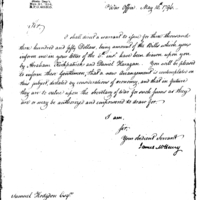 War Office May 12, 1796.
Sir,
I shall send a warrant to you for three thousand
three hundred and fifty Dollars, being amount of the Bills which you
inform me in your letter of the 5th inst. have been drawn upon you
by Abraham Kirkpatrick and Daniel Flanagan. You will be pleased
to inform these Gentlemen, that a new arrangement is contemplated on this
subject, dictated by considerations of economy, and that in future
they are to be upon the Secretary of War for such sums as they
are or may be authorised and empowered to draw for.
I am,
Sir,
Your obedient Servant
James McHenry
Samuel Hodgdon Esqr.